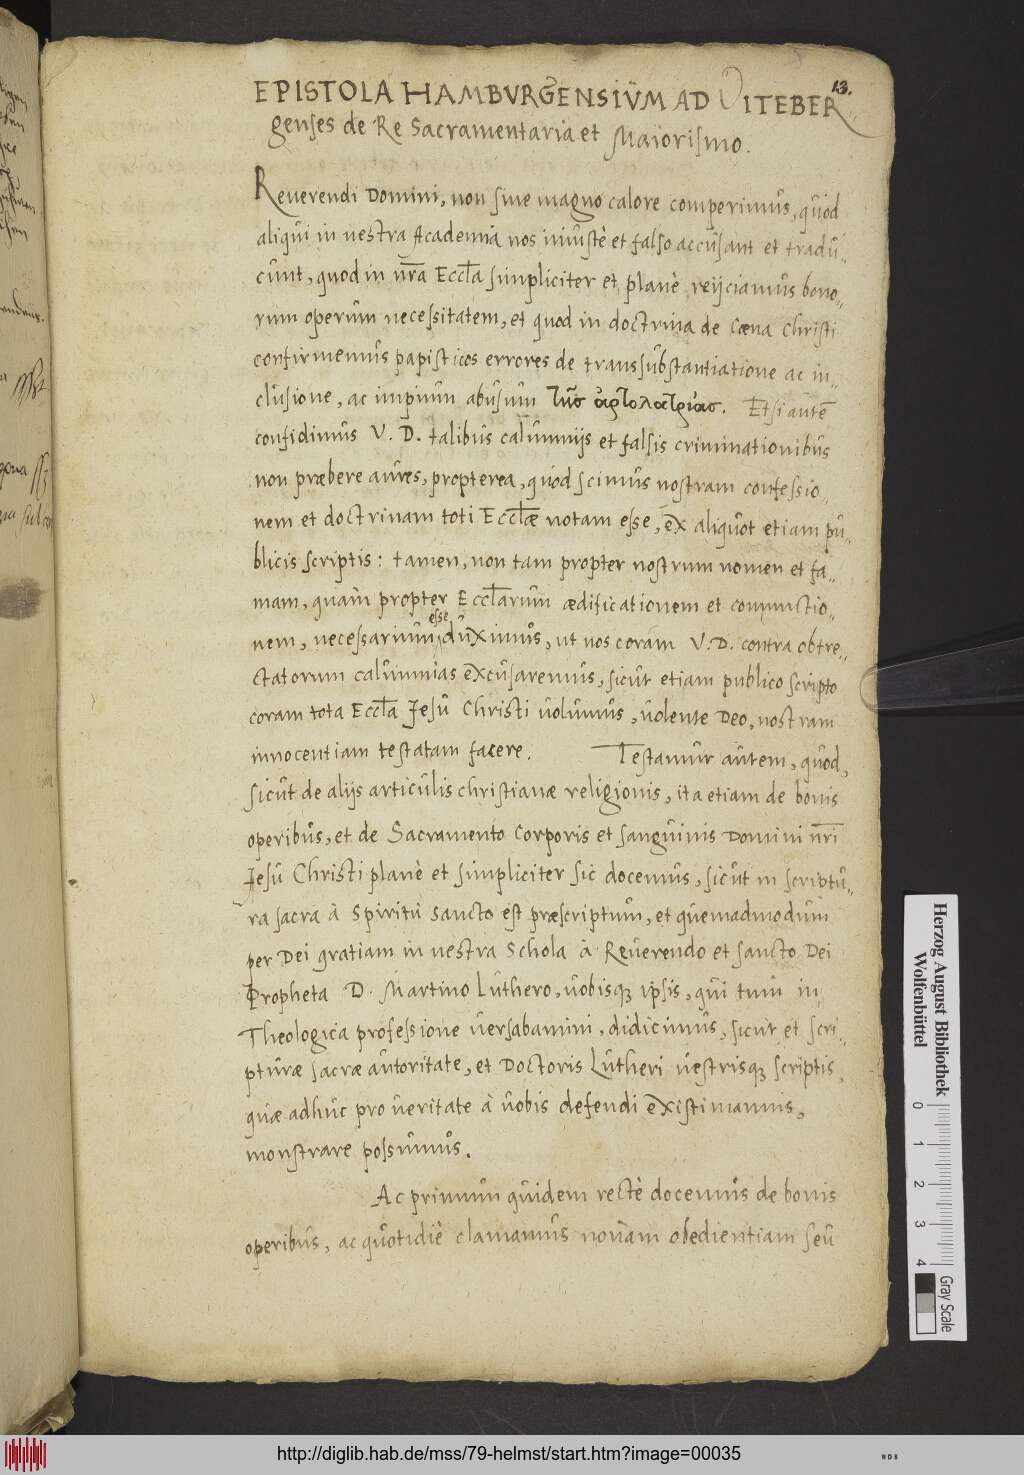 13.
EPISTOLA HAMBVRGENSIŬM AD VITEBER
genses de Re Sacramentaria et Maiorismo.
Reuerendi Domini, non sine magno calore comperimŭs, qŭòd
aliqŭi in uestra Academia nos iniŭstè et falso accŭsant et tradŭ-
cŭnt, quod in nr̄a Eccl̄a simpliciter et planè reijciamŭs bono-
rum operŭm necessitatem, et qŭod in doctrina de Cœna Christi
confirmemŭs papisticos errores de transsŭbstantiatione ac in-
clŭsione, ac impiŭm abŭsŭm τῆς ἀρτολατρίας. Etsi autē
confidimŭs V. D. talibŭs calŭmnijs et falsis criminationibŭs
non præbere aŭres, propterea, qŭòd scimŭs nostram confessio-
nem et doctrinam toti Eccl̄æ notam esse, ex aliqŭot etiam pŭ-
blicis scriptis: tamen, non tam propter nostrum nomen et fa-
mam, qŭàm propter Eccl̄arŭm ædificationem et coniunctio-
nem, necessariŭm esse dŭximŭs, ut nos coram V. D. contra obtre-
ctatorum calŭmnias excŭsaremŭs, sicŭt etiam publico scripto
coram tota Eccl̄a Jesŭ Christi ŭolŭmŭs, ŭolente Deo, nostram
innocentiam testatam facere. Testamŭr aŭtem, qŭod,
sicŭt de alijs articŭlis christianæ religionis, ita etiam de bonis
operibŭs, et de Sacramento Corporis et sangŭinis Domini nr̄i
Jesŭ Christi planè et simpliciter sic docemŭs, sicŭt in scriptŭ-
ra sacra à Spiritŭ Sancto est præscriptŭm, et qŭemadmodŭm
per Dei gratiam in uestra Schola à Reŭerendo et sancto Dei
Propheta D. Martino Lŭthero, ŭobisq; ipsis, qŭi tŭm in
Theologica professione ŭersabamini, didicimŭs, sicŭt et scri-
ptŭræ sacræ aŭtoritate, et Doctoris Lŭtheri ŭestrisq; scriptis,
qŭæ adhŭc pro ŭeritate à ŭobis defendi existimamŭs,
monstrare possŭmŭs.
Ac primŭm qŭidem rectè docemŭs de bonis
operibŭs, ac qŭotidiè clamamŭs noŭam obedientiam seŭ
Herzog August Bibliothek
Wolfenbüttel
0 1 2 3 4
Gray Scale
http://diglib.hab.de/mss/79-helmst/start.htm?image=00035